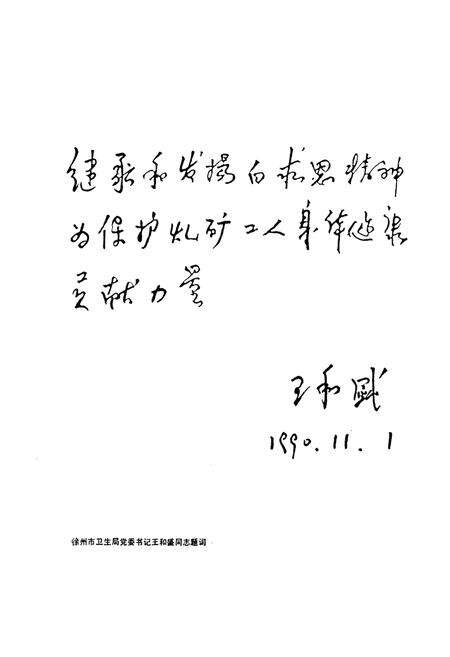 继承和发扬白求恩精神
为保护煤矿工人身体健康
贡献力量
王和盛
1990.11.1
徐州市卫生局党委书记王和盛同志题词